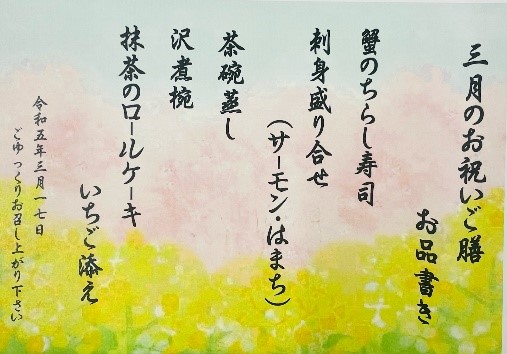 三月のお祝いご膳
お品書き
蟹のちらし寿司
刺身盛り合せ
(サーモン・はまち)
茶碗蒸し
沢煮椀
抹茶のロールケーキ
いちご添え
令和五年三月一七日
ごゆっくりお召し上がり下さい